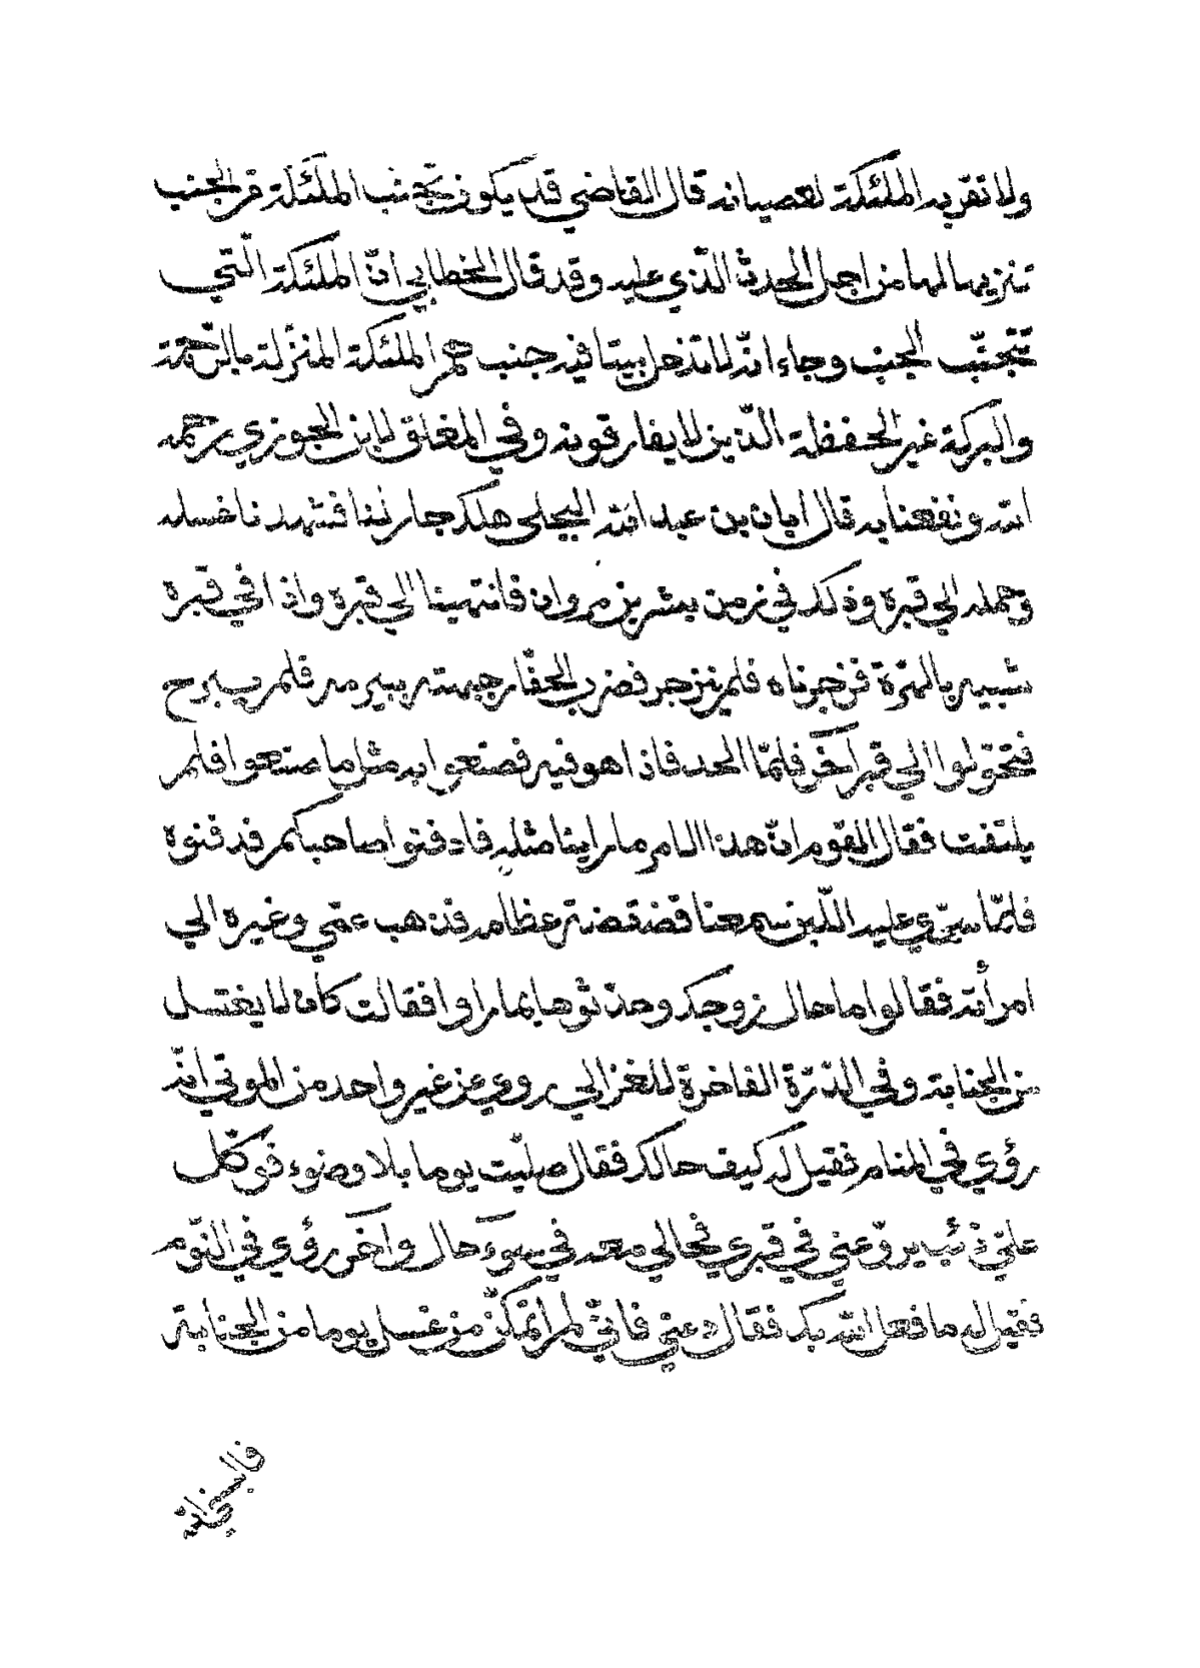 ولا تقربه الملئكة لعصيانه قال القاضي قد يكون تجنب الملئكة من الجنب
تنزيها لها من اجل الحدث الّذي عليه وقد قال الخطابي انّ الملئكة الّتي
تتجنّب الجنب وجاء انّها لا تدخل بيتا فيه جنب هم الملئكة المنزلة بالرّحمة
والبركة غير الحفظة الّذين لا يفارقونه وفي المغلق لابن الجوزي رحمه
الله ونفعنا به قال ابان بن عبد الله البجلي هلك جار لنا فشهدنا غسله
وحمله الى قبره وذلك في زمن بشر بن مروان فانتهينا الي قبره واذا في قبره
شبيه بالهرّة فزجرناه فلم ينزجر فضرب الحفّار جبهته ببيرمه فلم يبرح
فتحوّلوا الي قبر آخر فلمّا الحد فاذا هو فيه فصنعوا به مثل ما صنعوا فلم
يلتفت فقال القوم انّ هذا الامر ما راينا مثله فادفنوا صاحبكم فدفنوه
فلمّا سوّي عليه اللّبن سمعنا قضقضة عظامه فذهب عمّي وغيره الي
امرأته فقالوا ما حال زوجك وحدّثوها بما راوا فقالت كان لا يغتسل
من الجنابة وفي الدّرّة الفاخرة للغزالي روي عن غير واحد من الموتي انّه
رؤي في المنام فقيل له كيف حالك فقال صلّيت يوما بلا وضوء فوكّل
عليّ ذئب يروّعني في قبري فحالي معه في سوء حال وآخر رؤي في النّوم
فقيل له ما فعل الله بك فقال دعني فانّي لم اتمكّن من غسل يوما من الجنابة